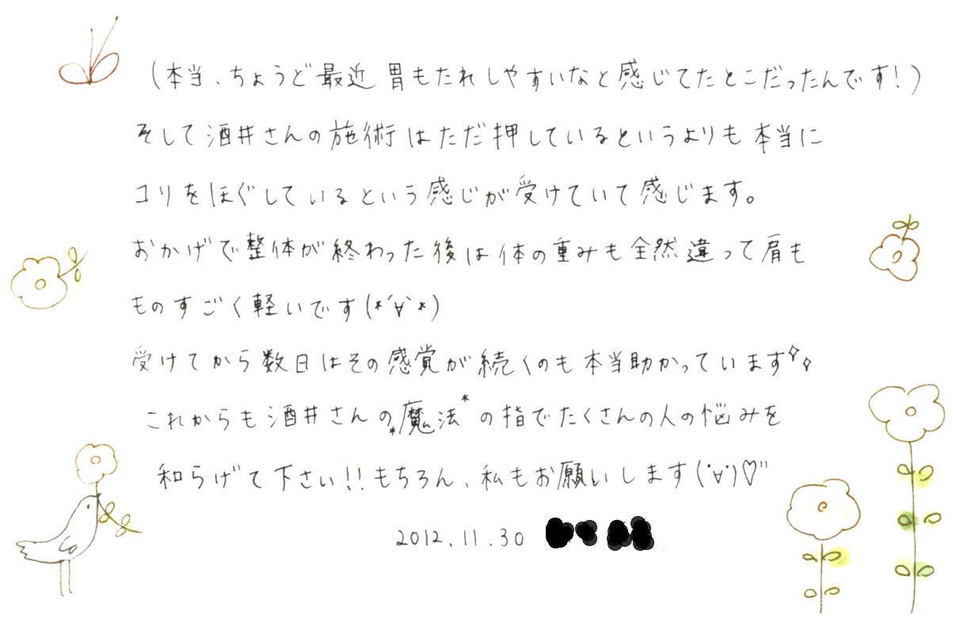 (本当、ちょうど最近 胃もたれしやすいなと感じてたとこだったんです!)
そして酒井さんの施術はただ押しているというよりも本当に
コリをほぐしているという感じが受けていて感じます。
おかげで整体が終わった後は体の重みも全然違って肩も
ものすごく軽いです(*´∀`*)
受けてから数日はその感覚が続くのも本当助かっています✧✧
これからも酒井さんの*魔法*の指でたくさんの人の悩みを
和らげて下さい!!もちろん、私もお願いします(˙∀˙)♡"
2012.11.30